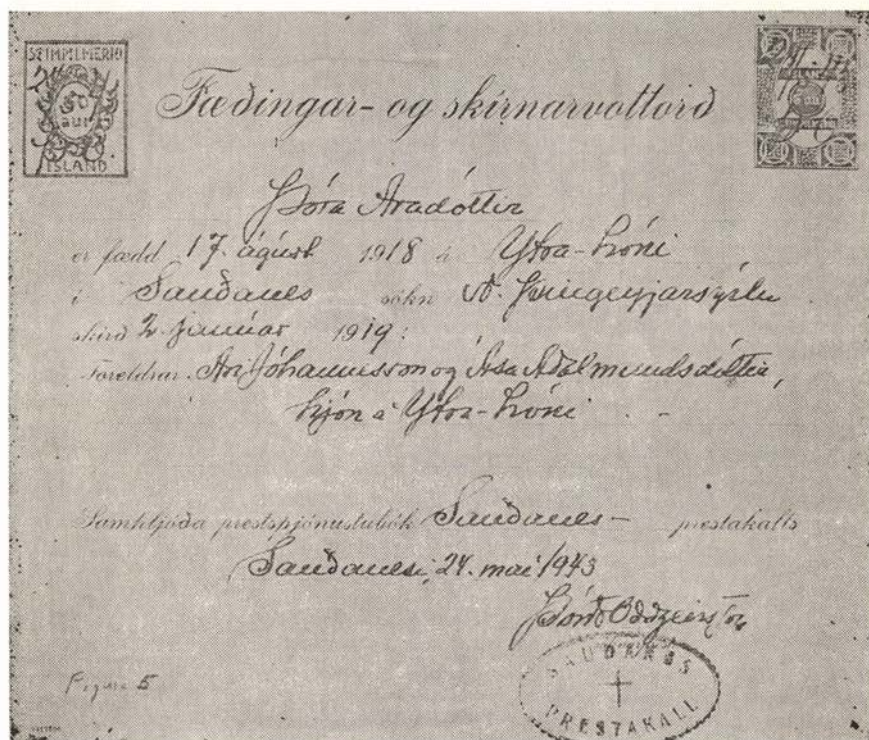 STIMPILMERKI
50
aur
ÍSLAND
Fæðingar- og skírnarvottorð
Þóra Aradóttir
er fædd 17. ágúst 1918 á Ytra-Lóni
í Sauðanes sókn N. Þingeyjarsýslu
skírð 2. janúar 1919:
Foreldrar Ari Jóhannesson og Ása Aðalmundsdóttir,
hjón á Ytra-Lóni
Samhljóða prestsþjónustubók Sauðanes- prestakalls
Sauðanesi, 24. maí 1943
Þórður Oddgeirsson
SAUÐANES
PRESTAKALL
Figure 5